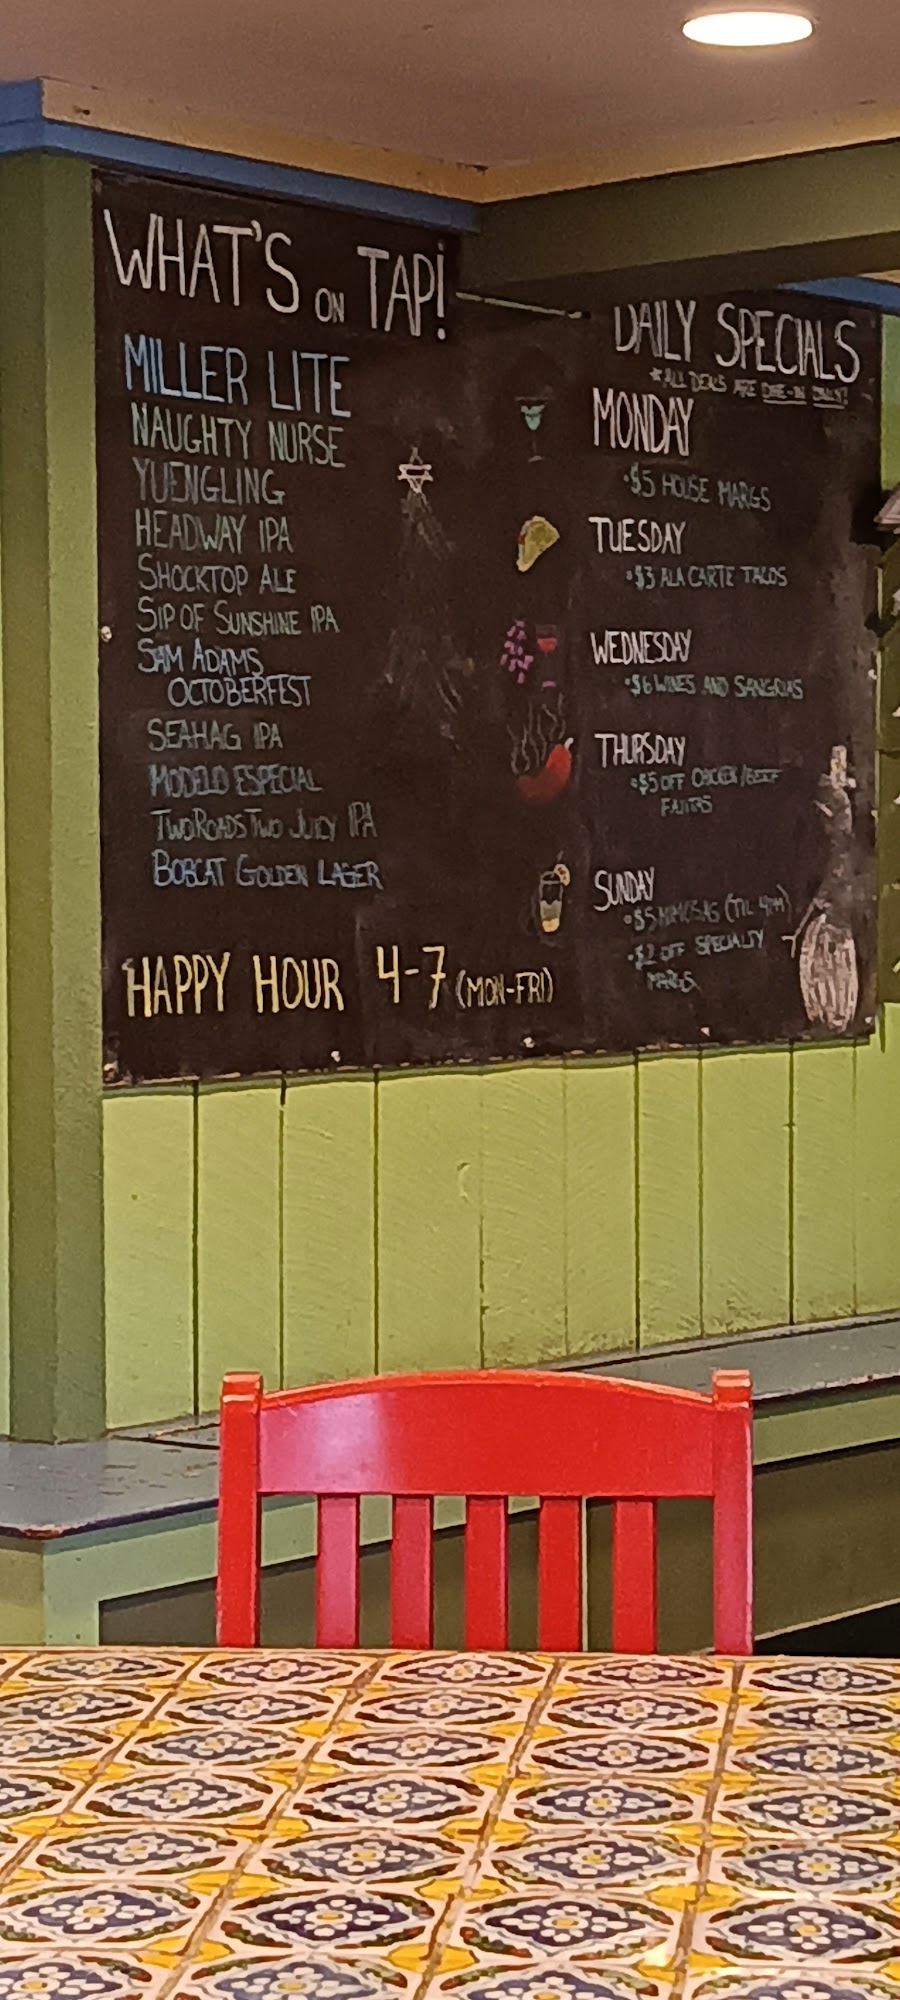 WHAT'S ON TAP!
MILLER LITE
NAUGHTY NURSE
YUENGLING
HEADWAY IPA
SHOCKTOP ALE
SIP OF SUNSHINE IPA
SAM ADAMS
OCTOBERFEST
SEAHAG IPA
MODELO ESPECIAL
TWO ROADS TWO JUICY IPA
BOBCAT GOLDEN LAGER
HAPPY HOUR 4-7 (MON-FRI)
DAILY SPECIALS
*ALL DEALS ARE DINE-IN ONLY!
MONDAY
•$5 HOUSE MARGS
TUESDAY
•$3 ALA CARTE TACOS
WEDNESDAY
•$6 WINES AND SANGRIAS
THURSDAY
•$5 OFF CHICKEN/BEEF
FAJITAS
SUNDAY
•$5 MIMOSAS (TIL 4PM)
•$2 OFF SPECIALTY
MARGS